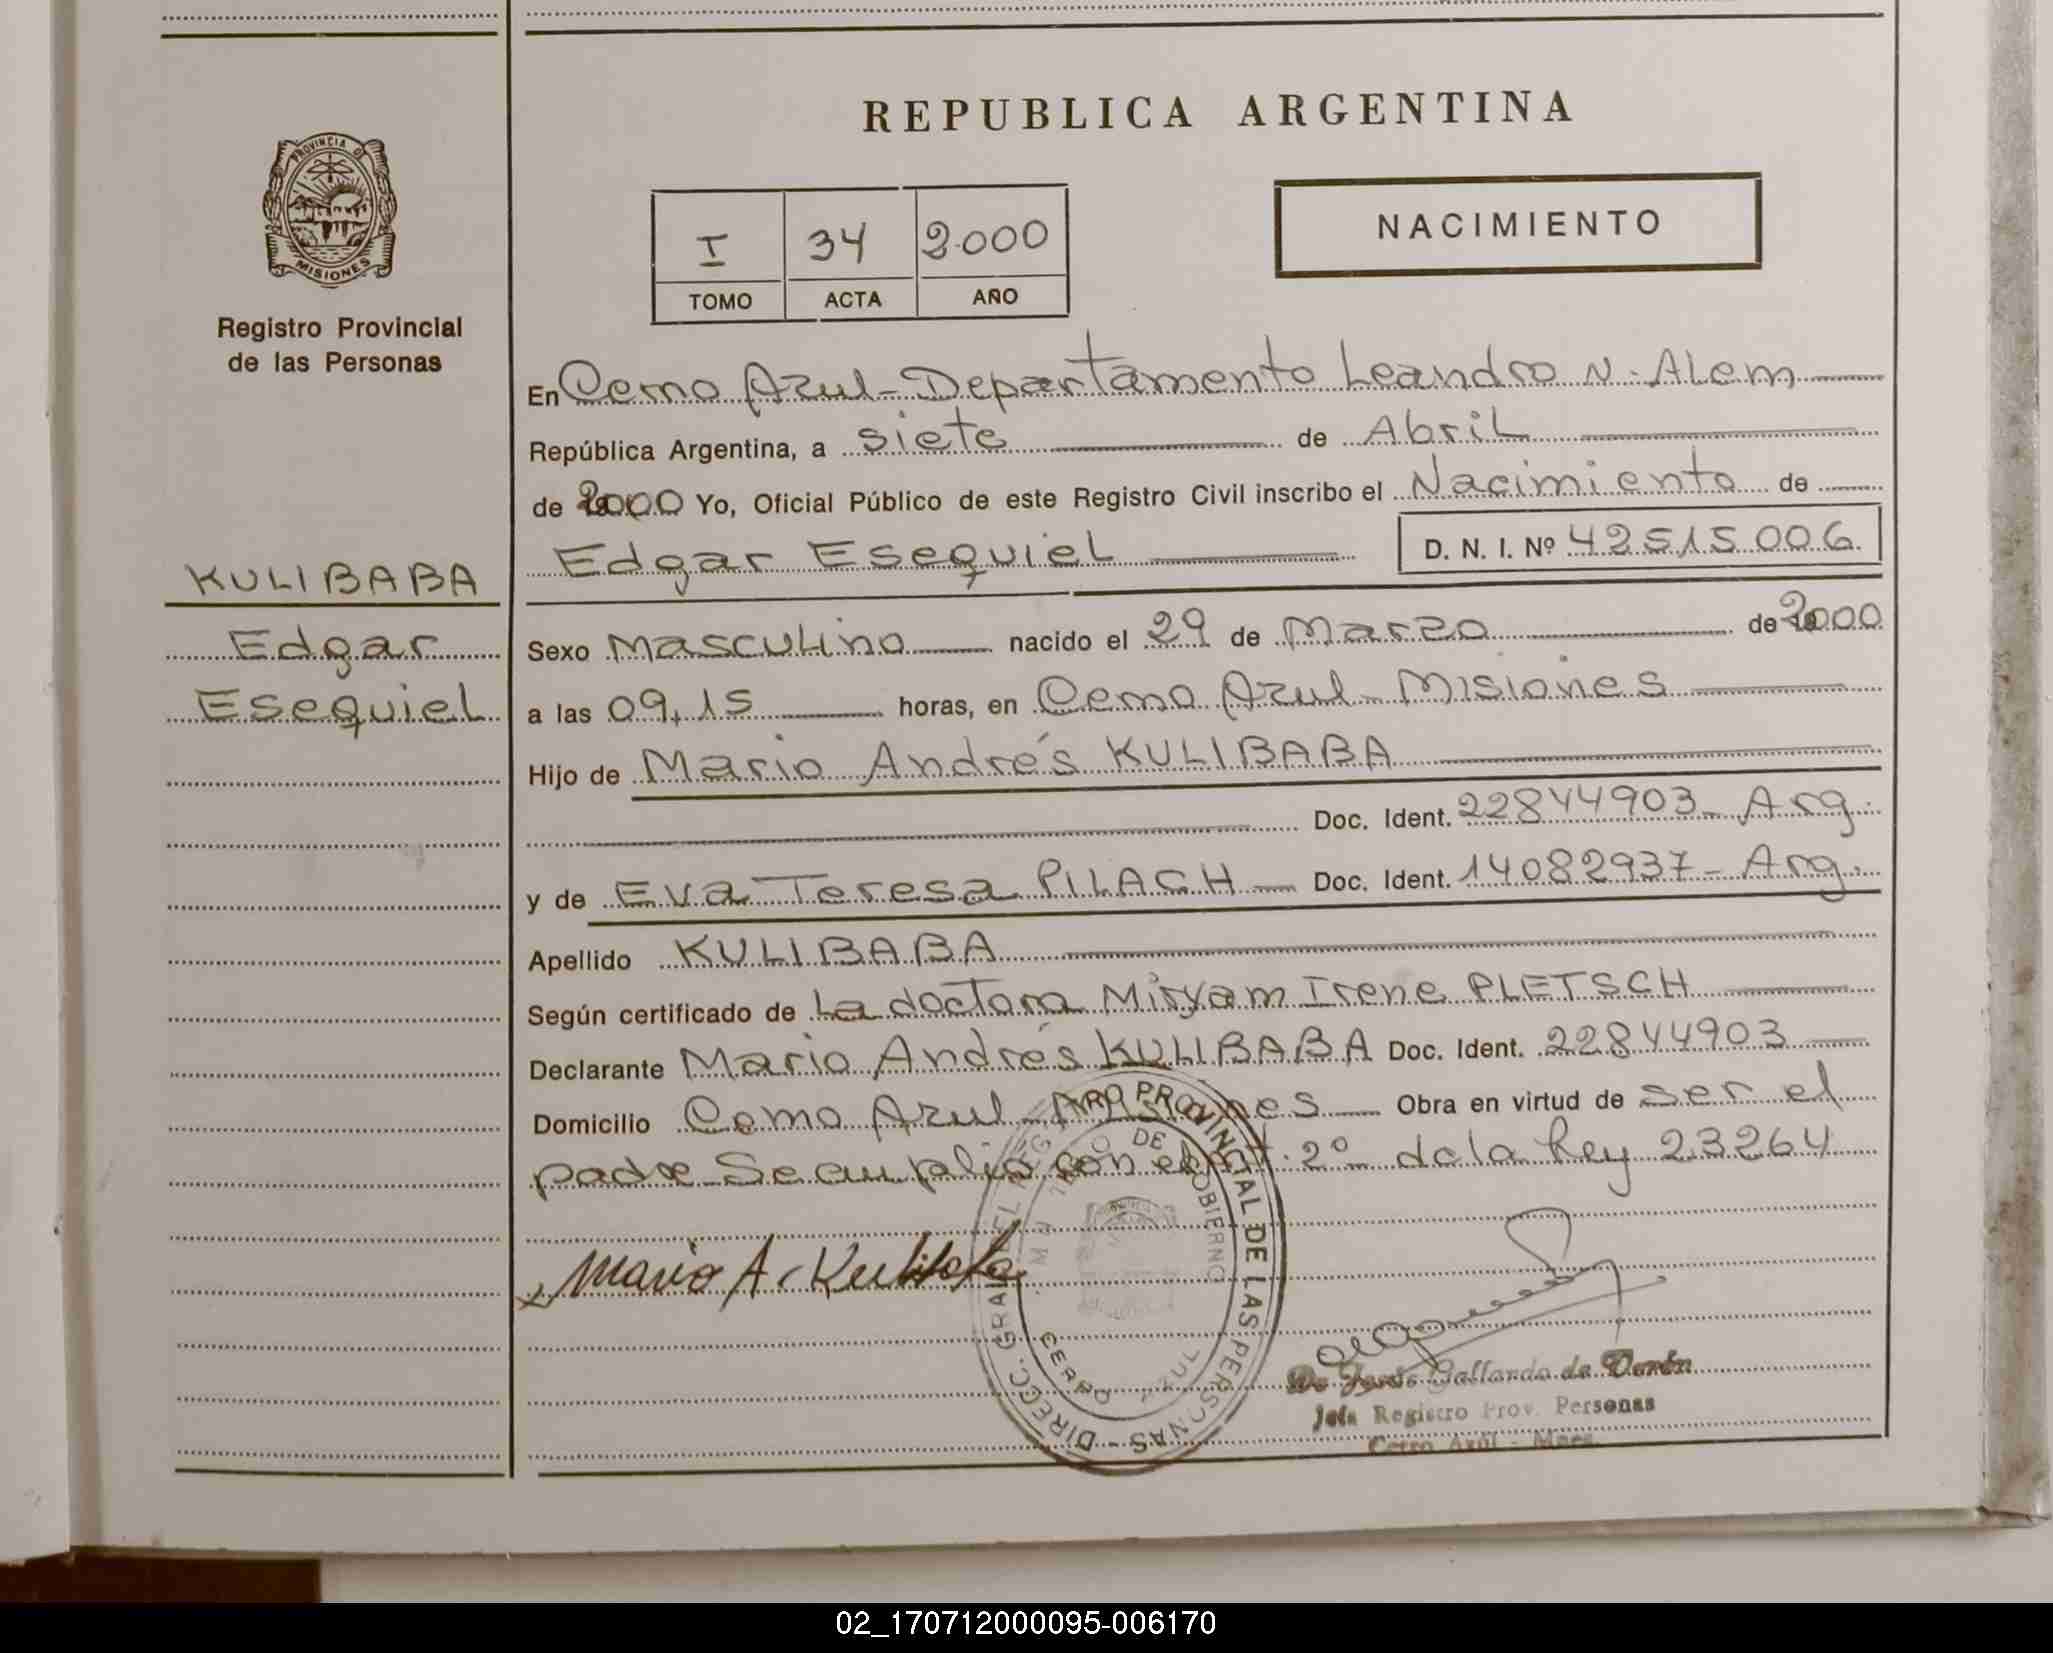 REPUBLICA ARGENTINA
PROVINCIA DE
MISIONES
Registro Provincial
de las Personas
I 34 2.000
TOMO ACTA AÑO
NACIMIENTO
En Cerro Azul - Departamento Leandro N. Alem
República Argentina, a siete de Abril
de 2000 Yo, Oficial Público de este Registro Civil inscribo el Nacimiento de
Edgar Esequiel D. N. I. Nº 42515006
KULIBABA
Edgar
Esequiel
Sexo Masculino nacido el 29 de Marzo de 2000
a las 09,15 horas, en Cerro Azul - Misiones
Hijo de Mario Andrés KULIBABA
Doc. Ident. 22844903 - Arg.
y de Eva Teresa PILACH Doc. Ident. 14082937 - Arg.
Apellido KULIBABA
Según certificado de La doctora Miryam Irene PLETSCH
Declarante Mario Andrés KULIBABA Doc. Ident. 22844903
Domicilio Cerro Azul - Misiones Obra en virtud de ser el
padre - Se cumplió con el Art. 2º de la Ley 23264
Mario A. Kulibaba
DIRECC. GRAL DEL REGISTRO PROVINCIAL DE LAS PERSONAS -
MINISTERIO DE GOBIERNO
CERRO AZUL
de Jesús Gallardo de
Jefa Registro Prov. Personas
Cerro Azul - Mnes.
02_170712000095-006170